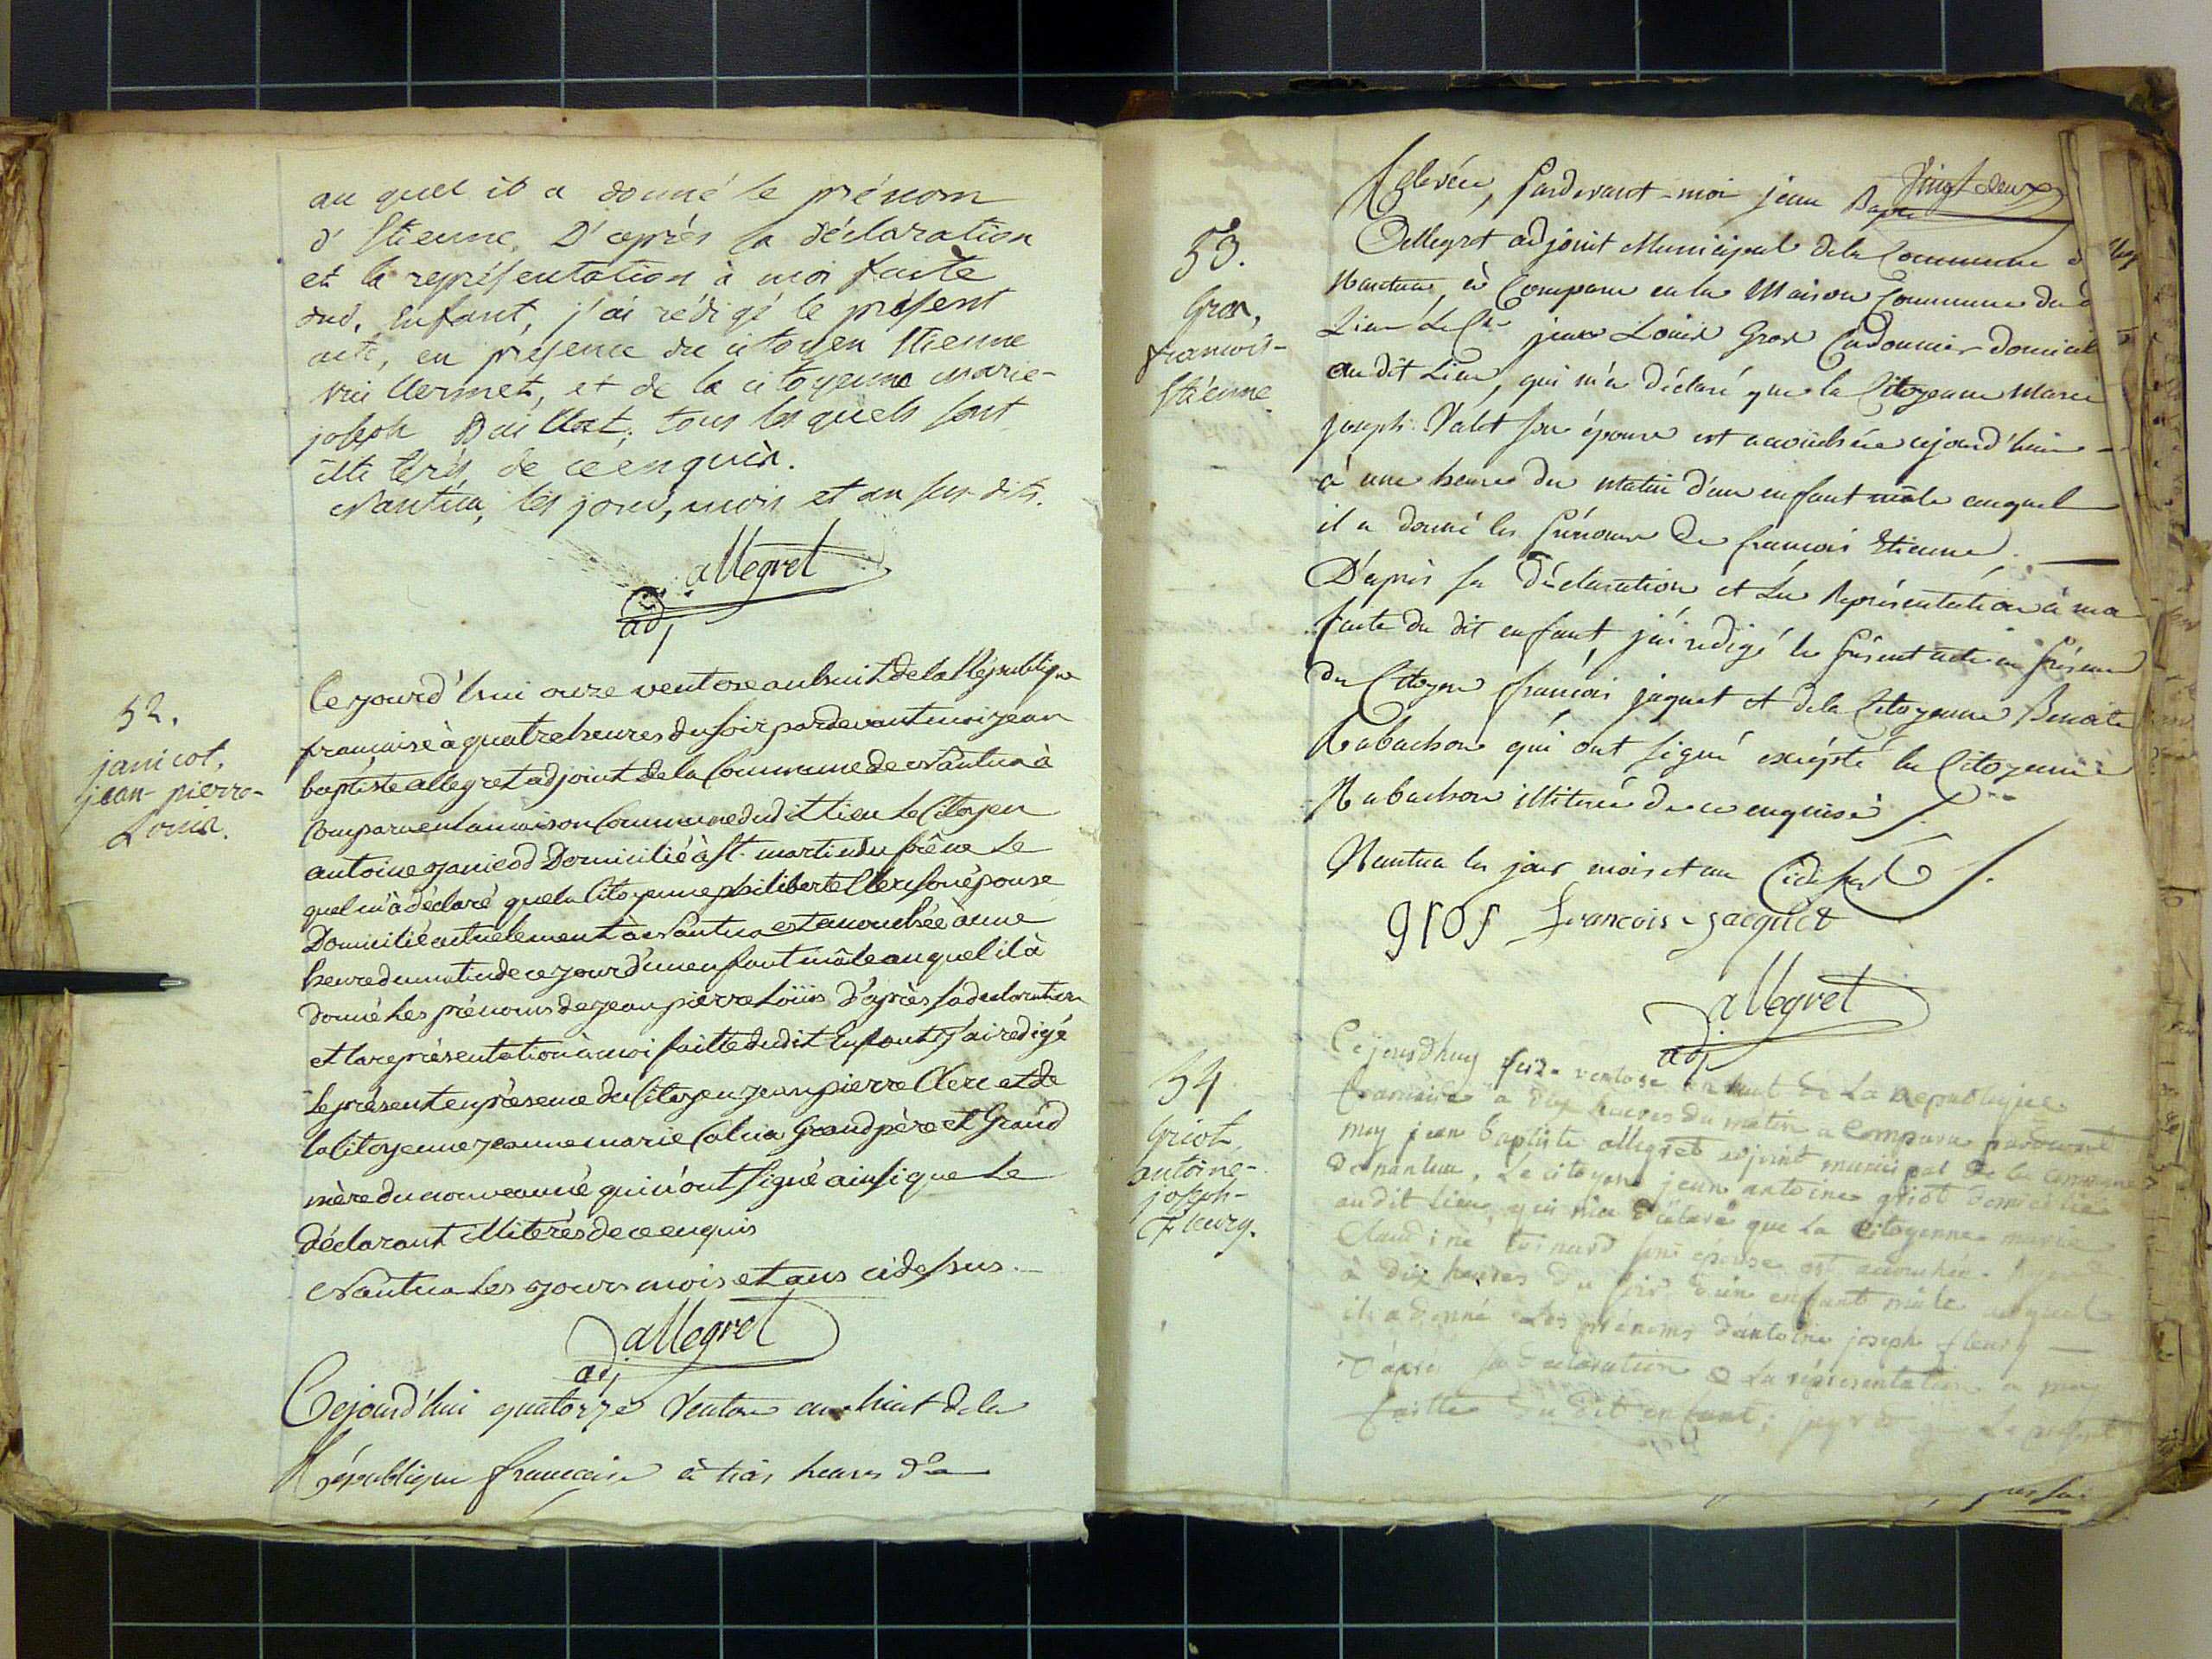 au quel il a donné le prénom
d'Etienne. D'après la déclaration
et la représentation à moi faite
dud. Enfant, j'ai rédigé le présent
acte, en présence du citoyen Etienne
vuillermet, et de la citoyenne marie-
joseph Baillat, tous lesquels sont
illiterés de ce enquis.
Nantua, les jour, mois et an sus-dits.
allegret
adj
52.
janicot,
jean-pierre-
Louis.
Cejourd'hui onze ventose an huit de la République
francaise à quatre heures du soir pardevant moi jean
baptiste allegret adjoint de la Commune de Nantua à
Comparu en la maison Commune dudit lieu le Citoyen
antoine janicod Domicilié à St. martin du frêne le
quel m'à déclaré que la Citoyenne philiberte Clerc son épouse
Domicilié actuelement à Nantua est accouchée à une
heure du matin de ce jour d'un enfant mâle auquel il à
donné les prénoms de jean pierre Loüis d'après sa declaration
et la représentation à moi faitte dudit Enfant J'ai redigé
le présent en présence du Citoyen jean pierre Clerc et de
la Citoyenne jeanne marie Grand père et Grand
mère du nouveau né qui n'ont signé ainsi que le
déclarant illiterés de ce enquis
Nantua les jours mois et ans cidessus.
allegret
adj
Cejourd'hui quatorze Ventose an huit de la
République francaise à trois heures de
Vingt deux
Relevée, pardevant-moi jean Bapte
53.
Gros,
francois-
Etienne.
Allegret adjoint Municipal de la Commune d
Nantua, à Comparu en la Maison Commune du d
Lieu Le Cen jean Louis Gros Cordonnier domicil
au dit Lieu, qui m'a déclaré que la Citoyenne Marie
Joseph Valet son épouse est accouchée cejourd'hui
à une heure du matin d'un enfant mâle auquel
il a donné les Prénoms de francois Etienne,
D'après sa déclaration et la Représentation à moi
faite du dit enfant, j'ai redigé le présent acte en présence
du Citoyen francois jaquet et de la Citoyenne Benoite
Rabachon qui ont signé excépté la Citoyenne
Rabachon illiterée de ce enquise
Nantua les jour mois et an Cidessus
gros francois jacquet
allegret
adj
54
Griot,
antoine-
joseph-
Fleury.
Cejourdhuy seize ventose an huit de La Republique
francaise a dix heures du matin a Comparu pardevant
moy jean baptiste allegret adjoint municipal de la Commune
de nantua, Le citoyen jean antoine griot domicilié
audit lieu, qui m'a déclaré que la Citoyenne marie
Claudine son épouse est accouchée
à dix heures du soir d'un enfant mâle auquel
il a donné Les prénoms d'antoine joseph fleury
D'après sa declaration & La représentation a moy
faitte du dit enfant, Le present